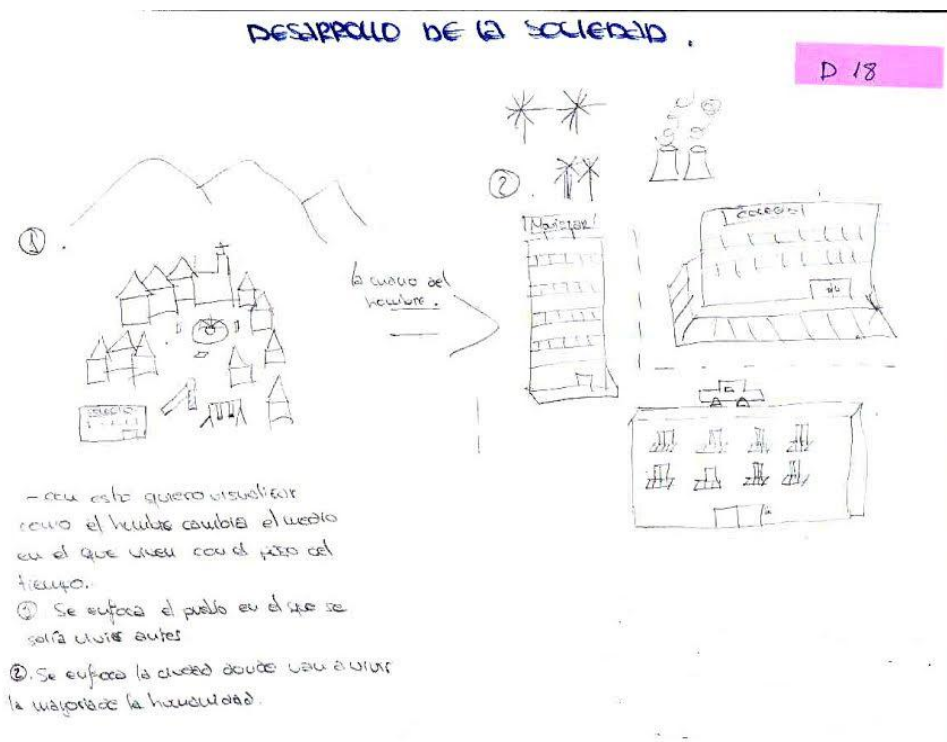 DESARROLLO DE LA SOCIEDAD.
D 18
①.
②.
la mano del
hombre.
COLEGIO
- con esto quiero visualizar
como el hombre cambia el medio
en el que viven con el paso del
tiempo.
① Se enfoca el pueblo en el que se
solía vivir antes
②. Se enfoca la ciudad donde van a vivir
la mayoria de la humanidad.